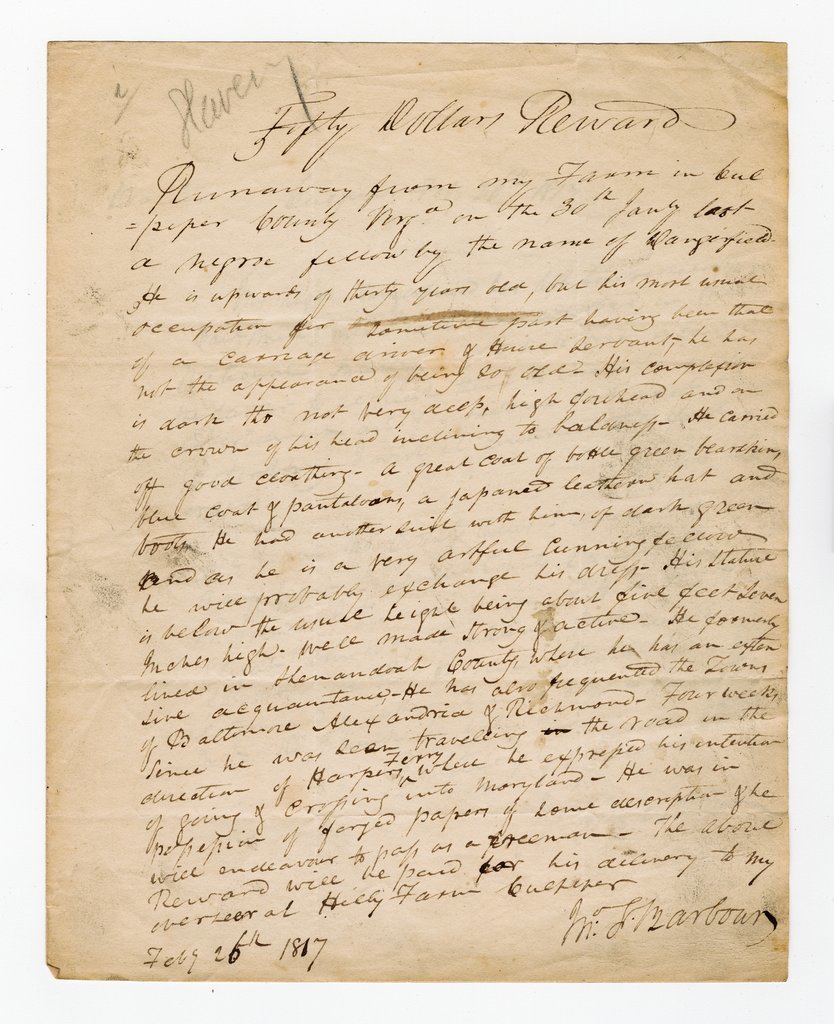 Slavery
Fifty Dollars Reward
Runaway from my Farm in Cul
=peper County Virg.a on the 30th Jany last
a negroe fellow by the name of Dangerfield.
He is upwards of thirty years old, but his most usual
occupation for sometime past having been that
of a carriage driver & House Servant, he has
not the appearance of being so old - His complexion
is dark tho not very deep, high forehead and on
the crown of his head inclining to baldness - He carried
off good cloathing - A great coat of bottle green bearskin,
blue coat & pantaloons, a japaned leathern hat and
boots He had another suit with him, of dark green
and as he is a very artful cunning fellow
he will probably exchange his dress - His Stature
is below the usual height being about five feet Seven
Inches high - well made strong & active - He formerly
lived in Shenandoah County, where he has an exten
sive acquaintance, - He has also frequented the Towns
of Baltimore Alexandria & Richmond - Four weeks
Since he was seen travelling in the road in the
direction of Harpers Ferry where he expressed his intention
of going & crossing into Maryland - He was in
possession of forged papers of some description & he
will endeavour to pass as a freeman - The above
Reward will be paid for his delivery to my
overseer at Hilly Farm Culpeper
Jno. S. Barbour
Feby 26th 1817